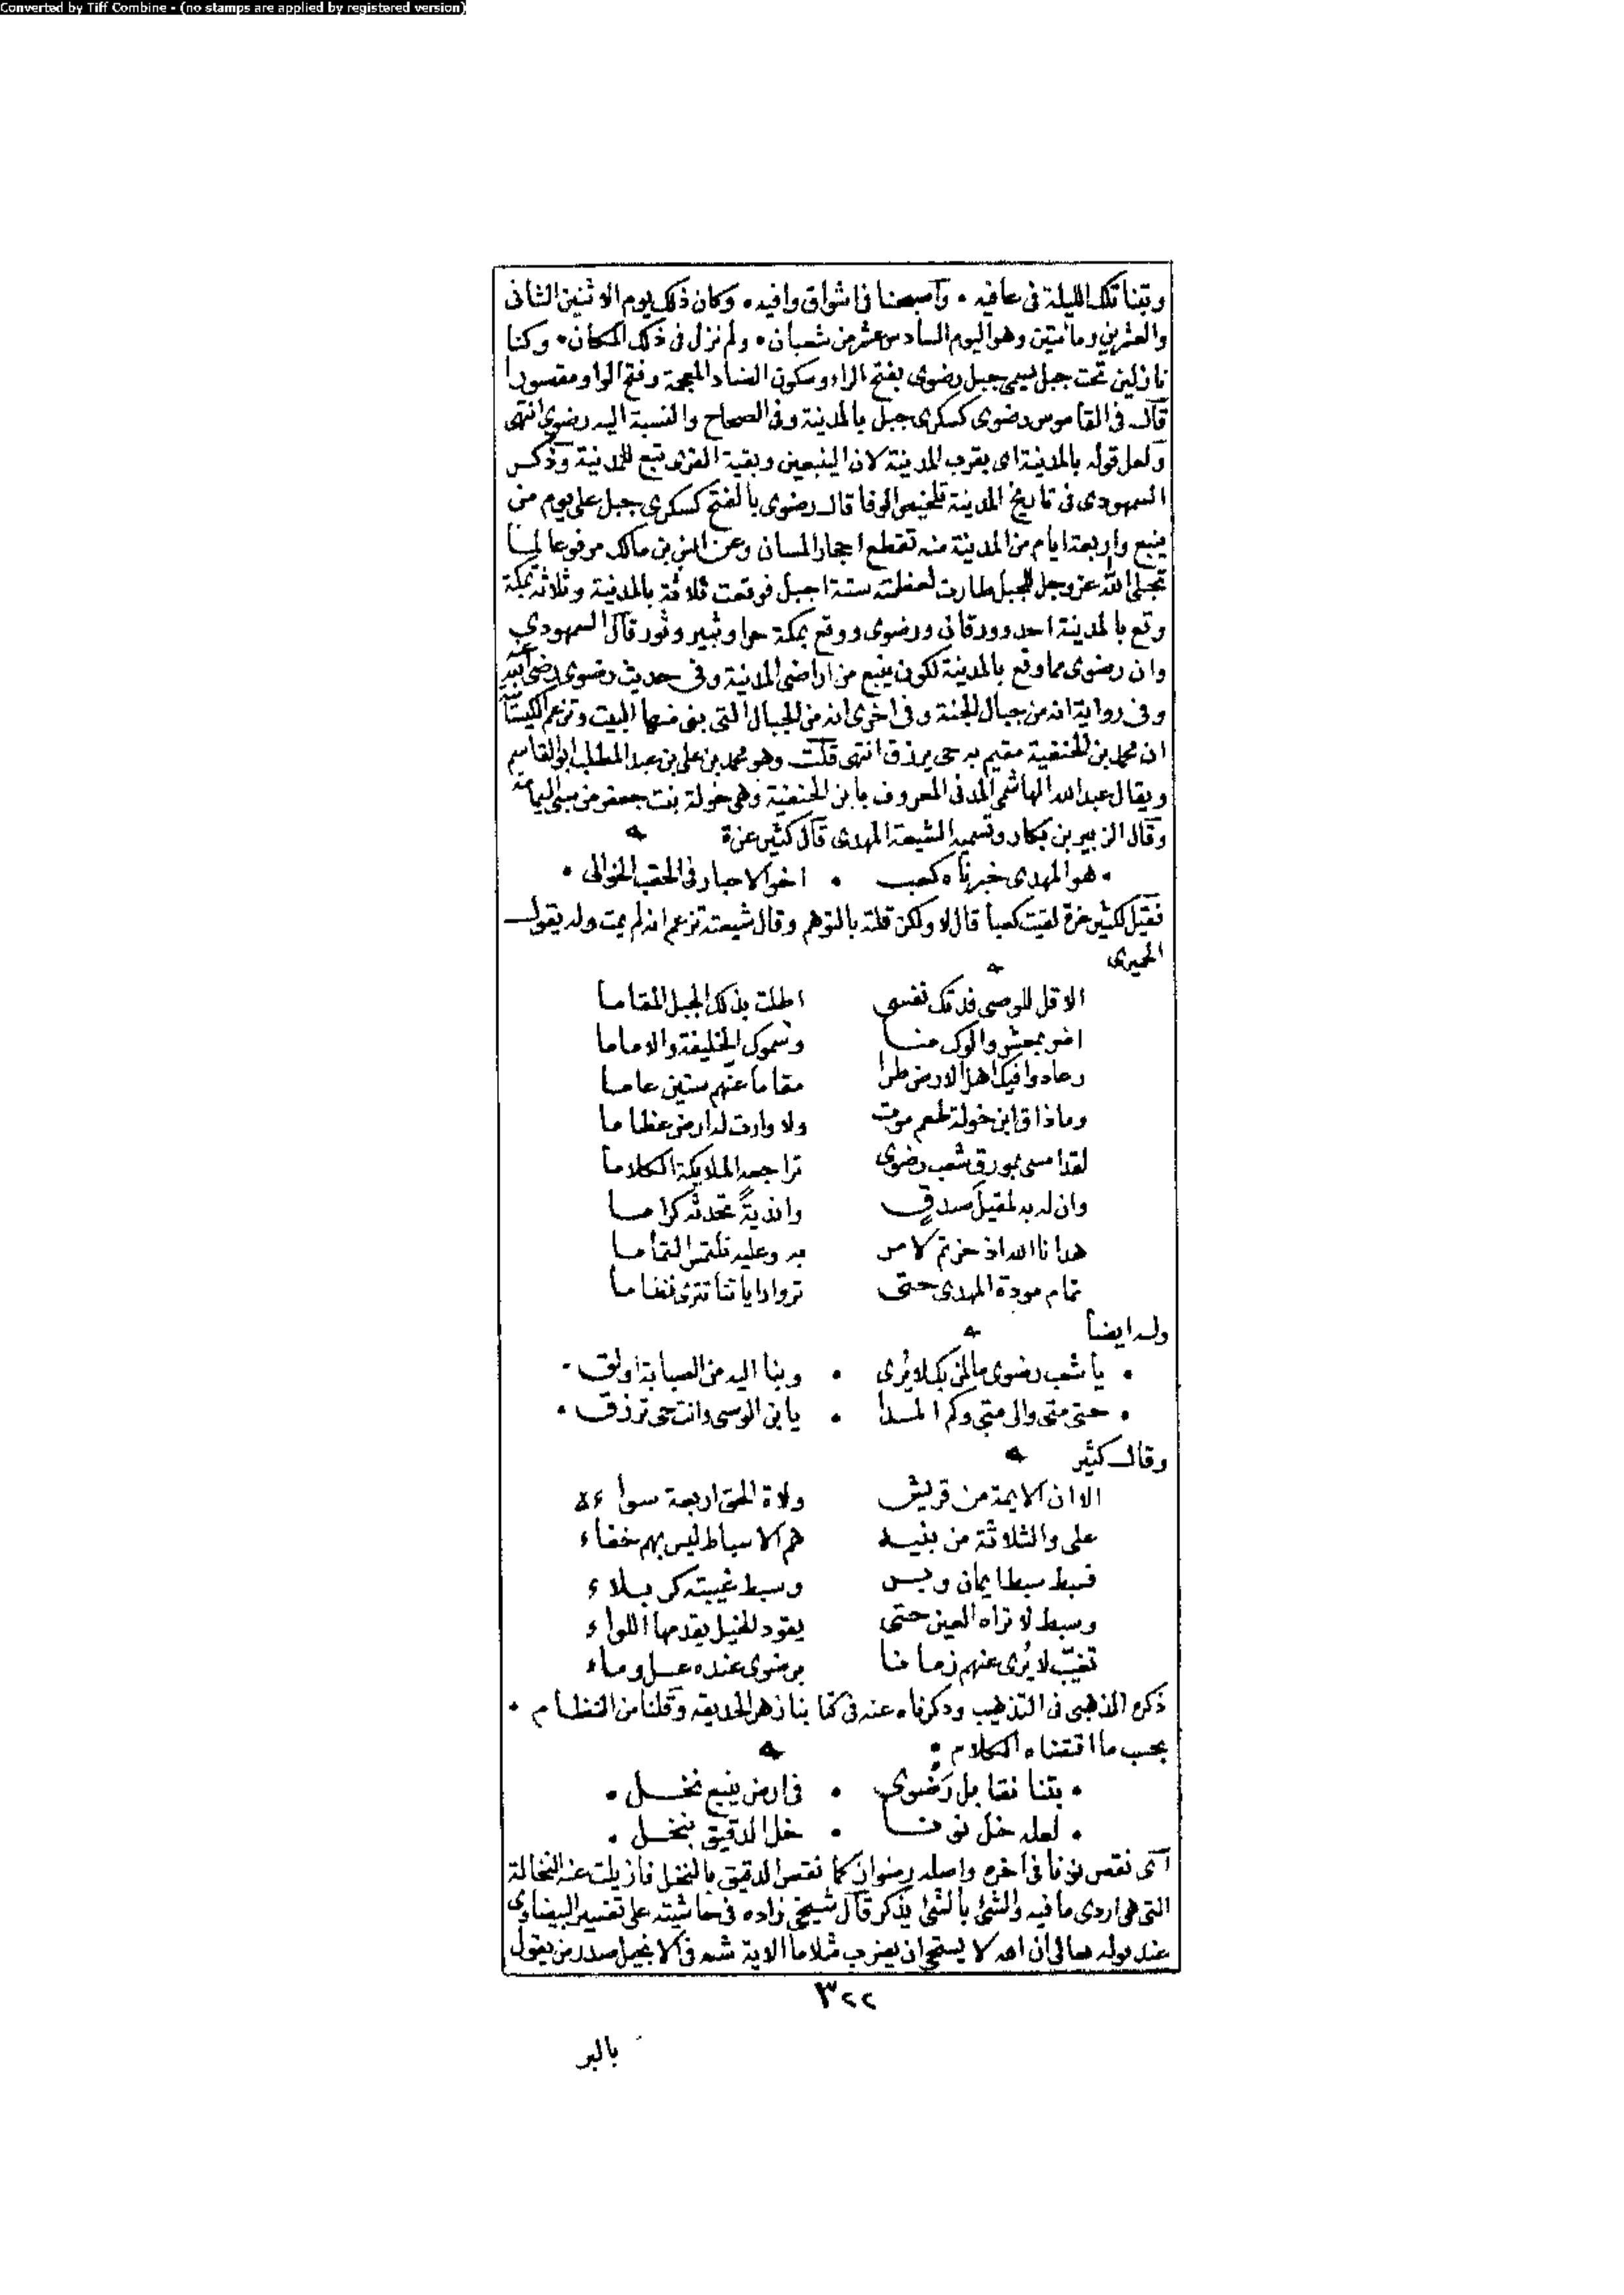 Converted by Tiff Combine - (no stamps are applied by registered version)
وبتنا تلك الليلة في عافيه • وأصبحنا في اشواق وافيه • وكان ذلك يوم الاثنين الثاني
والعشرين ومائتين وهو اليوم السادس عشر من شعبان • ولم نزل في ذلك المكان • وكنا
نازلين تحت جبل يسمى جبل رضوى بفتح الراء وسكون الضاد المعجمة وفتح الواو مقصورا
قال في القاموس رضوى كسكرى جبل بالمدينة وفي الصحاح والنسبة اليه رضوي انتهى
ولعل قوله بالمدينة اى بقرب المدينة لان الينبعين وبقية القرى تبع للمدينة وذكر
السمهودى في تاريخ المدينة تلخيص الوفا قال رضوى بالفتح كسكرى جبل على يوم من
ينبع واربعة ايام من المدينة منه تقطع احجار المسان وعن انس بن مالك مرفوعا لما
تجلى الله عز وجل للجبل طارت لعظمته ستة اجبل فوقعت ثلاثة بالمدينة وثلاثة بمكة
وقع بالمدينة احد وورقان ورضوى ووقع بمكة حرا وثبير وثور قال السمهودي
وان رضوى مما وقع بالمدينة لكون ينبع من اراضى المدينة وفي حديث رضوى رضى الله عنه
وفي رواية انه من جبال الجنة وفي اخرى انه من الجبال التي بنى منها البيت وتزعم الكيسانية
ان محمد بن الحنفية مقيم به حي يرزق انتهى قلت وهو محمد بن على بن عبد المطلب ابو القاسم
ويقال عبد الله الهاشمى المدنى المعروف بابن الحنفية وهى خولة بنت جعفر من سبى اليمامة
وقال الزبير بن بكار وتسميه الشيعة المهدى قال كثير عزة
• هو المهدى خبرناه كعب • اخو الاحبار في الحقب الخوالى •
فقيل لكثير عزة لقيت كعبا قال لا ولكن قلته بالتوهم وقال شيعته تزعم انه لم يمت وله يقول
الحميرى
الا قل للوصى فدتك نفسى اطلت بذلك الجبل المقاما
اضر بمعشر والوك منا وسموك الخليفة والاماما
وعادوا فيك اهل الارض طرا مقاما عنهم ستين عاما
وما ذاق ابن خولة طعم موت ولا وارت له ارض عظاما
لقد امسى بمورق شعب رضوى تراجعه الملايكة الكلاما
وان له به لمقيل صدقٍ واندية تحدثه كراما
هدانا الله اذ حزتم لامر به وعليه نلتمس التماما
تمام مودة المهدى حتى تروا راياتنا تترى نظاما
وله ايضاً
• يا شعب رضوى ما لمن بك لا يُرى • وبنا اليه من الصبابة اولق •
• حتى متى والى متى وكم المدا • يا ابن الوصى وانت حى ترزق •
وقال كثير
الا ان الايمة من قريش ولاة الحق اربعة سواء
على والثلاثة من بنيه هم الاسباط ليس بهم خفاء
فسبط سبط ايمان وبر وسبط غيبته كربلاء
وسبط لا تراه العين حتى يقود الخيل يقدمها اللواء
تغيّب لا يُرى عنهم زمانا برضوى عنده عسل وماء
ذكره الذهبى في التذهيب وذكرناه عنه في كتابنا زهر الحديقه وقلنا من النظام •
بحسب ما اقتضاه الكلام
• بتنا نقابل رَضْوى • في ارض ينبع نخل •
• لعله خل نونا • خل الدقيق بنخل •
اى نقص نونا في اخره واصله رضوان كما نقص الدقيق بالنخل فازيلت عنه النخالة
التي هي اردى ما فيه والشئ بالشئ يذكر قال شيخى زاده في حاشيته على تفسير البيضاوى
عند قوله تعالى ان الله لا يستحى ان يضرب مثلا ما الاية شبه في الانجيل صدر من يقول
٣٢٢
بالبر